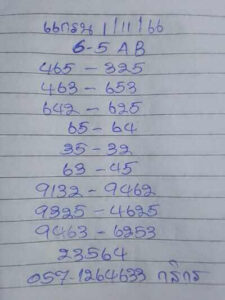 1/11/66
6-5 A B
465 - 325
463 - 653
642 - 625
65 - 64
35 - 32
63 - 45
9132 - 9462
9325 - 4625
9463 - 6253
23564
057-1264633 กสิกร